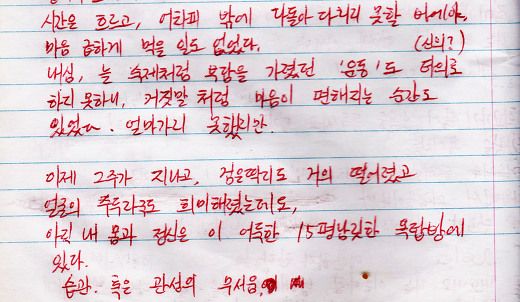 시간은 흐르고, 어차피 밖에 나돌아 다니지 못할 바에야,
마음 급하게 먹을 일도 없었다.
(신의?)
내심, 늘 숙제처럼 부담을 가졌던 '운동'도 타의로
하지 못하니, 거짓말처럼 마음이 편해지는 순간도
있었다. 얼마가지 못했지만.
이제 2주가 지나고, 검은딱지도 거의 떨어졌고
얼굴의 자국도 희미해졌는데도,
아직 내 몸과 정신은 이 어둑한 15평남짓한 독립방에
있다.
습관. 혹은 관성의 무서움.